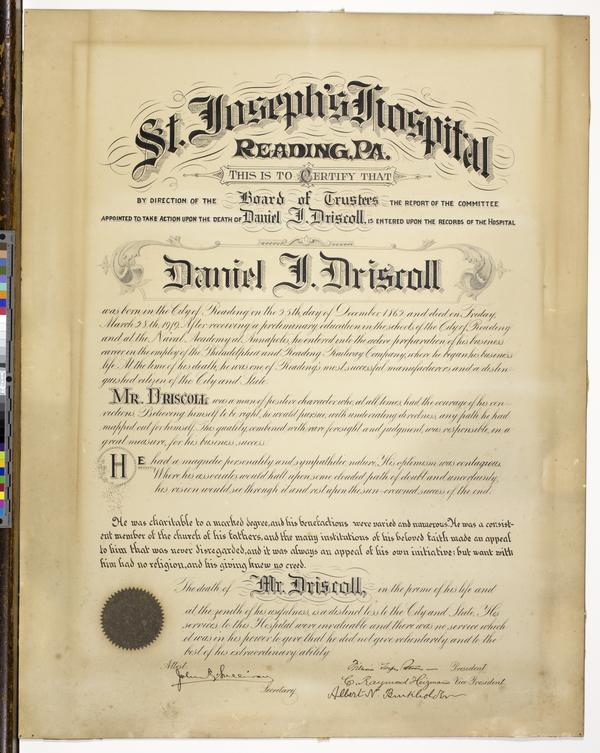 St. Joseph's Hospital
READING, PA.
THIS IS TO CERTIFY THAT
BY DIRECTION OF THE Board of Trustees THE REPORT OF THE COMMITTEE
APPOINTED TO TAKE ACTION UPON THE DEATH OF Daniel F. Driscoll, IS ENTERED UPON THE RECORDS OF THE HOSPITAL
Daniel F. Driscoll
was born in the City of Reading on the 25th day of December 1862 and died on Friday,
March 28th, 1919. After receiving a preliminary education in the schools of the City of Reading
and at the Naval Academy at Annapolis, he entered into the active preparation of his business
career in the employ of the Philadelphia and Reading Railway Company, where he began his business
life. At the time of his death, he was one of Reading's most successful manufacturers and a distin-
guished citizen of the City and State.
MR. DRISCOLL was a man of positive character who, at all times, had the courage of his con-
victions. Believing himself to be right, he would pursue, with undeviating directness, any path he had
mapped out for himself. This quality, combined with rare foresight and judgment, was responsible, in a
great measure, for his business success.
HE had a magnetic personality and sympathetic nature. His optimism was contagious.
Where his associates would halt upon some clouded path of doubt and uncertainty,
his vision would see through it and rest upon the sun-crowned success of the end.
He was charitable to a marked degree, and his benefactions were varied and numerous. He was a consist-
ent member of the church of his fathers, and the many institutions of his beloved faith made an appeal
to him that was never disregarded, and it was always an appeal of his own initiative: but want with
him had no religion, and his giving knew no creed.
The death of Mr. Driscoll, in the prime of his life and
at the zenith of his usefulness, is a distinct loss to the City and State. His
services to this Hospital were invaluable and there was no service which
it was in his power to give that he did not give voluntarily and to the
best of his extraordinary ability.
Attest President
John Sullivan C. Raymond Heizmann Vice President
Secretary Albert N. Burkholder